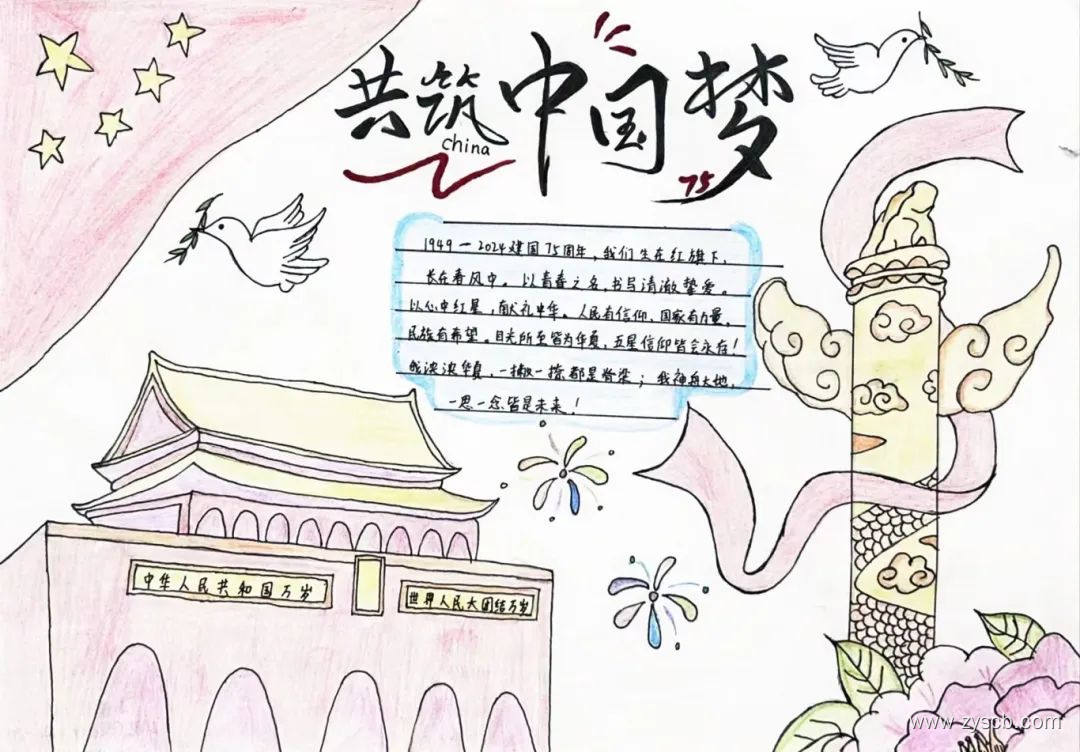 共筑中国梦
china
75
1949—2024建国75周年，我们生在红旗下，
长在春风中。以青春之名，书写清澈挚爱。
以心中红星，献礼中华。人民有信仰，国家有力量，
民族有希望。目光所至皆为华夏，五星信仰皆会永存！
我泱泱华夏，一撇一捺都是脊梁；我神舟大地，
一思一念皆是未来！
中华人民共和国万岁
世界人民大团结万岁
www.zyscb.com